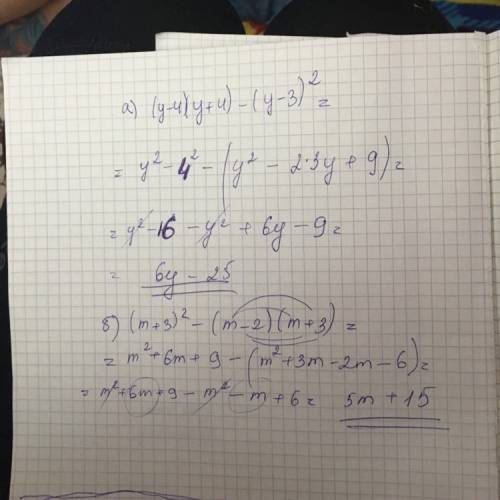 а) (y-4)(y+4) - (y-3)² =
= y² - 4² - (y² - 2·3y + 9) =
= y² - 16 - y² + 6y - 9 =
= 6y - 25
б) (m+3)² - (m-2)(m+3) =
= m² + 6m + 9 - (m² + 3m - 2m - 6) =
= m² + 6m + 9 - m² - m + 6 = 5m + 15